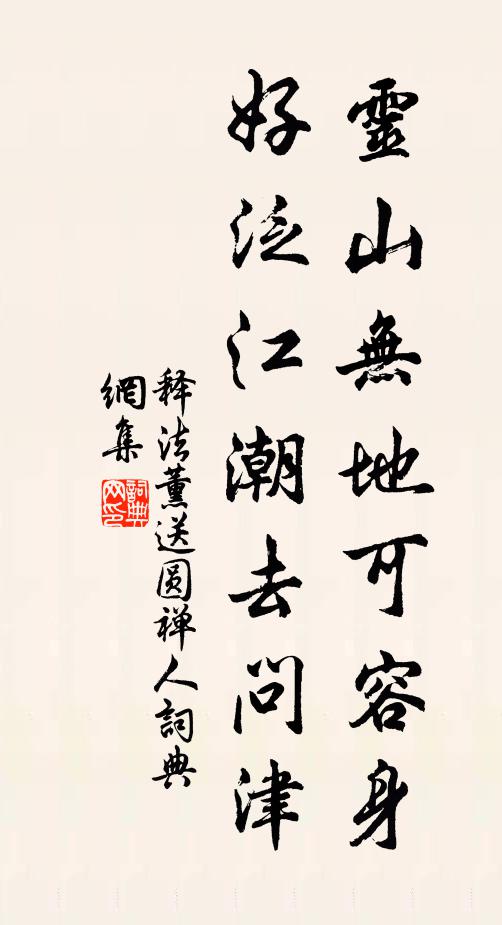 靈山無地可容身
好泛江潮去問津
释法薰送圆禅人詞典
網集
詞典
网印